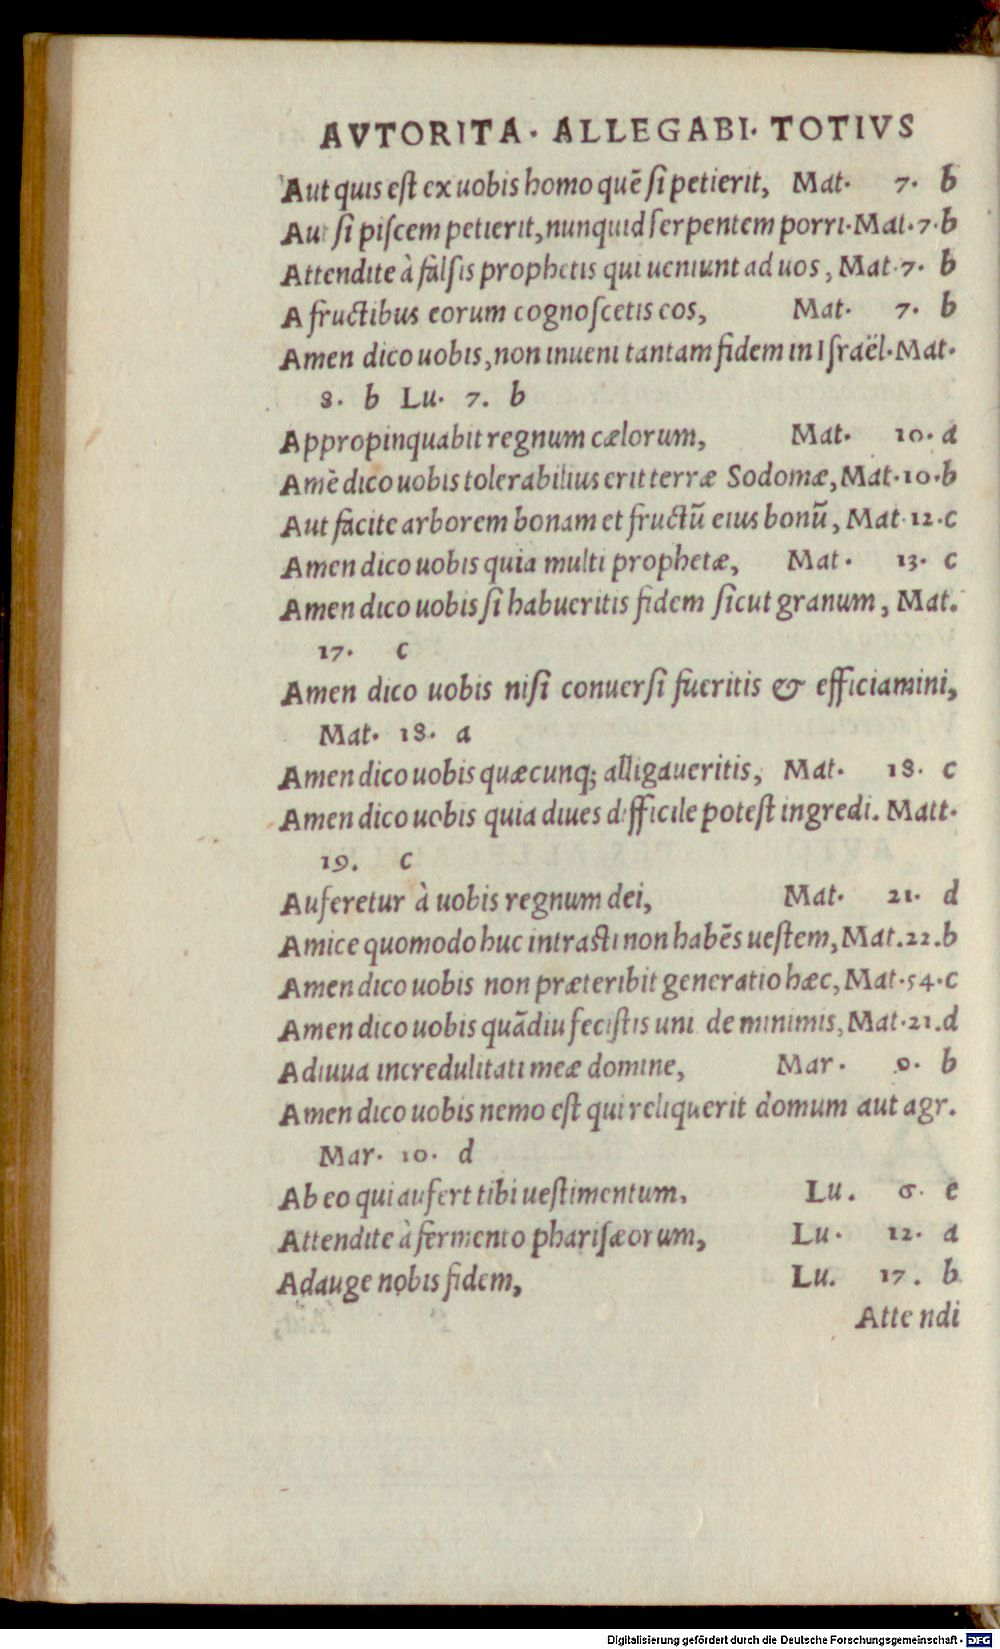 AVTORITA· ALLEGABI· TOTIVS
Aut quis est ex uobis homo quē si petierit, Mat· 7· b
Aut si piscem petierit, nunquid serpentem porri·Mat·7·b
Attendite à falsis prophetis qui ueniunt ad uos, Mat·7· b
A fructibus eorum cognoscetis eos, Mat· 7· b
Amen dico uobis, non inueni tantam fidem in Israël·Mat·
8· b Lu· 7. b
Appropinquabit regnum cælorum, Mat· 10· a
Amē dico uobis tolerabilius erit terræ Sodomæ, Mat·10·b
Aut facite arborem bonam et fructū eius bonū, Mat·12·c
Amen dico uobis quia multi prophetæ, Mat· 13· c
Amen dico uobis si habueritis fidem sicut granum, Mat.
17· c
Amen dico uobis nisi conuersi fueritis & efficiamini,
Mat· 18· a
Amen dico uobis quæcunq; alligaueritis, Mat· 18· c
Amen dico uobis quia diues difficile potest ingredi. Matt·
19. c
Auferetur à uobis regnum dei, Mat· 21· d
Amice quomodo huc intrasti non habēs uestem, Mat.22.b
Amen dico uobis non præteribit generatio hæc, Mat·54·c
Amen dico uobis quādiu fecistis uni de minimis, Mat·21.d
Adiuua incredulitati meæ domine, Mar· 9· b
Amen dico uobis nemo est qui reliquerit domum aut agr.
Mar· 10· d
Ab eo qui aufert tibi uestimentum. Lu. 6· e
Attendite à fermento pharisæorum, Lu· 12· a
Adauge nobis fidem, Lu. 17. b
Attendi
Digitalisierung gefördert durch die Deutsche Forschungsgemeinschaft - DFG